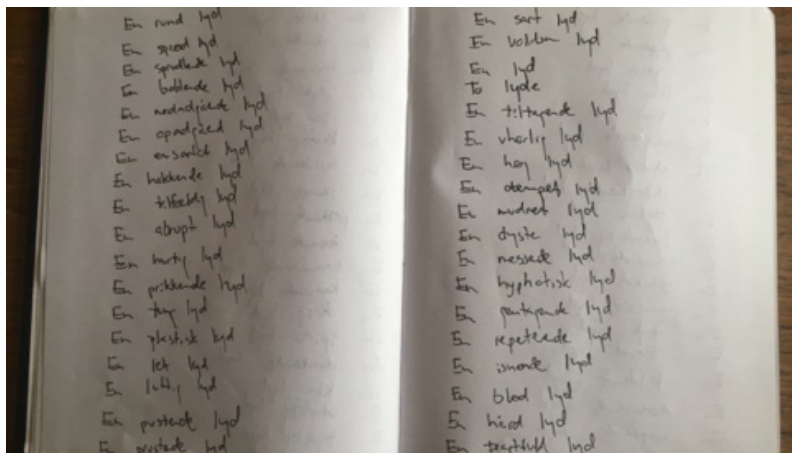 En rund lyd
En sprød lyd
En sprudlende lyd
En boblende lyd
En nedadgående lyd
En opadgående lyd
En ensartet lyd
En hakkende lyd
En tilfældig lyd
En abrupt lyd
En hurtig lyd
En prikkende lyd
En lyd
En plastisk lyd
En let lyd
En luftig lyd
En pustende lyd
En lyd
En sart lyd
En lyd
En lyd
To lyde
En tiltagende lyd
En uhørlig lyd
En høj lyd
En dæmpet lyd
En mudret lyd
En dyster lyd
En messende lyd
En hypnotisk lyd
En lyd
En repeterende lyd
En lyd
En blød lyd
En hård lyd
En lyd